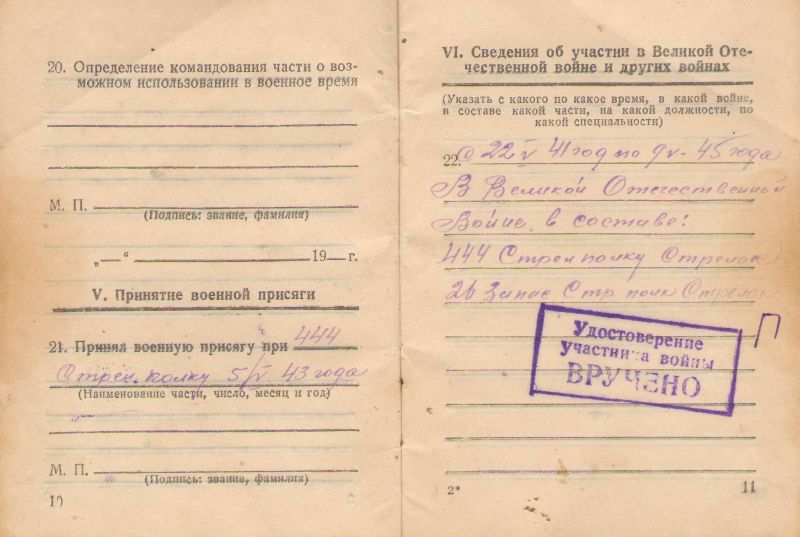 20. Определение командования части о воз-
можном использовании в военное время
М. П.
(Подпись: звание, фамилия)
„—“ 19 г.
V. Принятие военной присяги
21. Принял военную присягу при 444
Стрел. полку 5/V 43 года
(Наименование части, число, месяц и год)
М. П.
(Подпись: звание, фамилия)
10
VI. Сведения об участии в Великой Оте-
чественной войне и других войнах
(Указать с какого по какое время, в какой войне,
в составе какой части, на какой должности, по
какой специальности)
22. С 22/V 41 год по 9/V-45 года
В Великой Отечественной
Войне в составе:
444 Стрел полку Стрелок
26 Запас Стр полк Стрелок
Удостоверение
участника войны
ВРУЧЕНО
П
2*
11